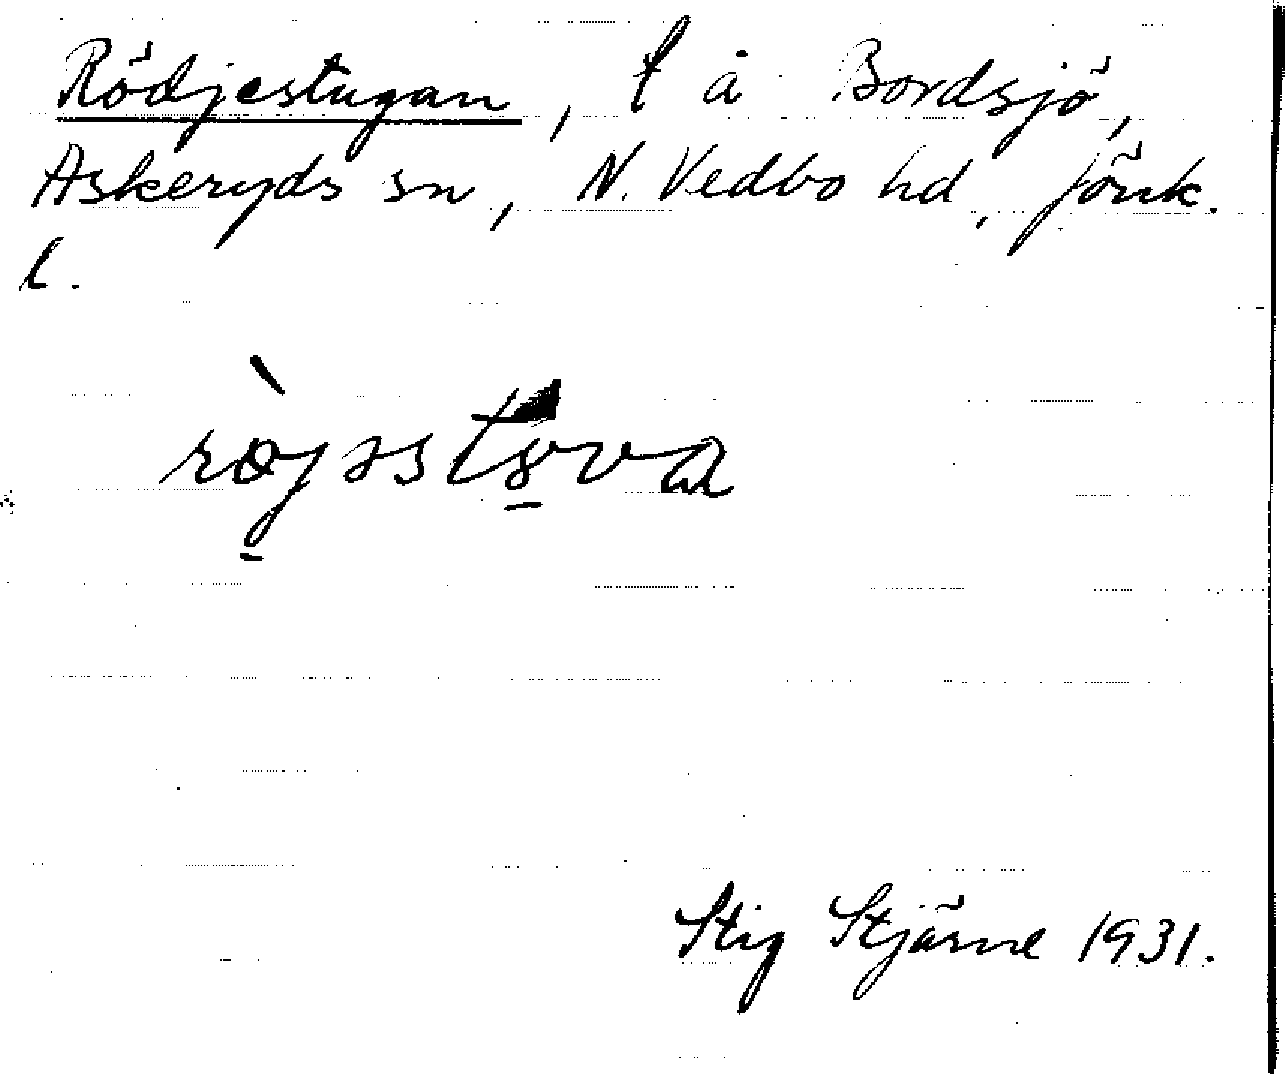 Rödjestugan, t å Bordsjö,
Askeryds sn, N. Vedbo hd, Jönk.
l.
Stig Stjärne 1931.